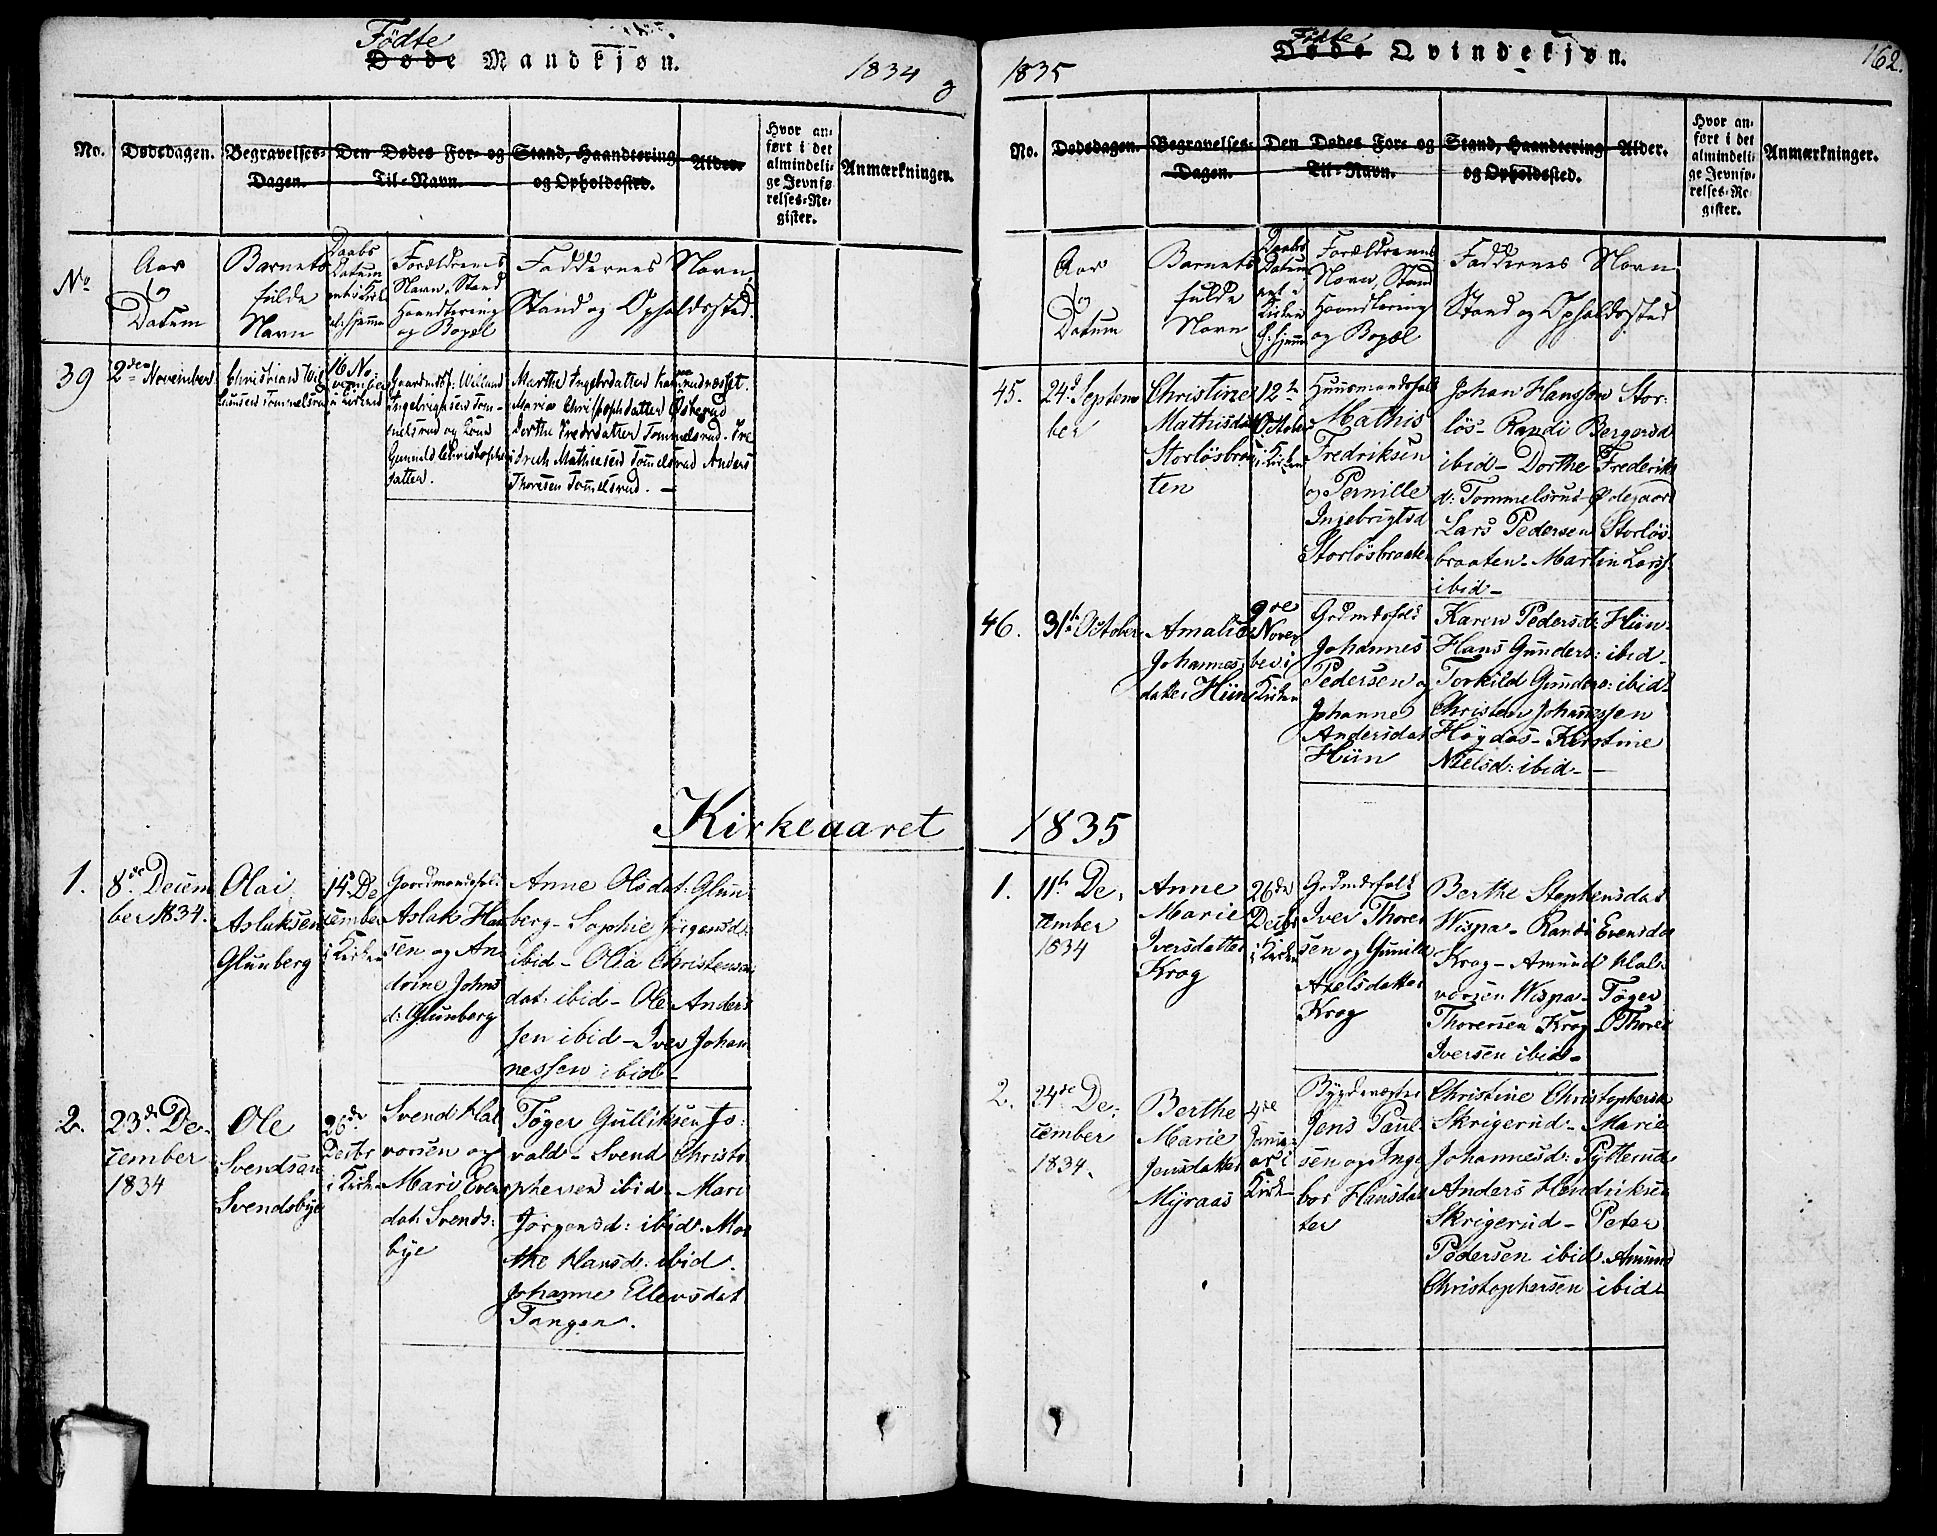 Fødte
Døde Mandkjøn.
1834 og
No.
Dødsdagen.
Begravelses-
Dagen.
Den Dødes For- og
Til-Navn.
Stand, Haandtering
og Opholdssted.
Alder.
Hvor an-
ført i det
almindeli-
ge Jevnfø-
relses-Re-
gister.
Anmærkninger.
No
Aar
og
Datum
Barnets
fulde
Navn
Daabs
Datum
Forældrenes
Navn, Stand
Haandtering
og Bopæl
Faddernes Navn
Stand og Opholdssted.
39
2den November
Christian Wil
lumsen Tommelsrud
16 No-
vember
i Kirken
Gaardmdsf. Willum
Ingebrigtsen Tom-
melsrud og Kone
Gunneld Christophe
datter.
Marthe Ingebrdatter
Marie Christophdatter Østerud
Dorthe Fredrdatter Tommelsrud. Fre
drich Mathiesen Tommelsrud Anders
Thoresen Tommelsrud. —
Kirkeaaret
1.
8de Decem
ber 1834.
Olai
Aslaksen
Glunberg
14d De
cember
i Kirken
Gaardmandsfol.
Aslak Han
sen og An
drine Johns
d: Glunberg
Anne Olsdat. Glun-
berg - Sophie Jörgensd:
ibid - Olia Christens
dat: ibid - Ole Anders
sen ibid - Iver Johan
nessen ibid -
2.
23d De-
cember
1834
Ole
Svendsen
Svendsbye
26de
Decbr
i Kirken
Svend Hal
vorsen og
Mari Evens
dat: Svends-
bye
Töger Gulliksen Jo-
vald - Svend Christo-
phersen ibid - Mari
Jörgensd: ibid. Mar
the Hansd: ibid.
Johanne Ellevsdat
Tangen.
1835
Fødte
Døde Qvindekjøn.
162.
No.
Dødsdagen.
Begravelses-
Dagen.
Den Dødes For- og
Til-Navn.
Stand, Haandtering
og Opholdssted.
Alder.
Hvor an-
ført i det
almindeli-
ge Jevnfø-
relses-Re-
gister.
Anmærkninger.
Aar
og
Datum
Barnets
fulde
Navn
Daabs
Datum
Kirken
Forældrenes
Navn, Stand
Haandtering
og Bopæl
Faddernes Navn
Stand og Opholdssted
45.
24d Septem
ber
Christine
Mathisdat
Storlösbraa
ten
12te
October
i Kirken
Huusmandsfolk
Mathis
Fredriksen
og Pernille
Ingebrigtsd
Storlösbraaten
Johan Hanssen Stor-
lös - Randi Bergersd
ibid - Dorthe Frederiks
d: Tommelsrud Ødegaard
Lars Pedersen Storlös-
braaten - Martin Larss.
ibid -
46.
31te October
Amalie
Johannes-
datter Hiin
9de
Novem
ber i
Kirken
Grdmdsfolk
Johannes
Pedersen og
Johanne
Andersdat
Hiin
Karen Pedersd: Hiin -
Hans Gunders: ibid -
Torkild Gunders: ibid -
Christen Johannessen
Høydas - Kirstine
Nielsd: ibid - —
1835
1.
11te De-
cember
1834
Anne
Marie
Iversdatter
Krog
26de
Decbr
i Kirken
Grdmdsfolk
Iver Thorer
sen og Gunild
Axelsdatter
Krog
Berthe Stephensdat
Wispa - Randi Evensdat
Krog - Amund Hal-
vorsen Wispa - Töger
Thorersen Krog - Thorer
Iversen ibid -
2.
24de De-
cember
1834.
Berthe
Marie
Jensdatter
Myraas
4de
Janu-
ar i
Kirken
Jens Paul
sen og Inge
bor Hansdat
ter
Christine Christophersd
Skrigerud - Marie
Johannesd: Pytterud
Anders Hendriksen
Skrigerud - Peter
Pedersen ibid. Amund
Christophersen ibid -